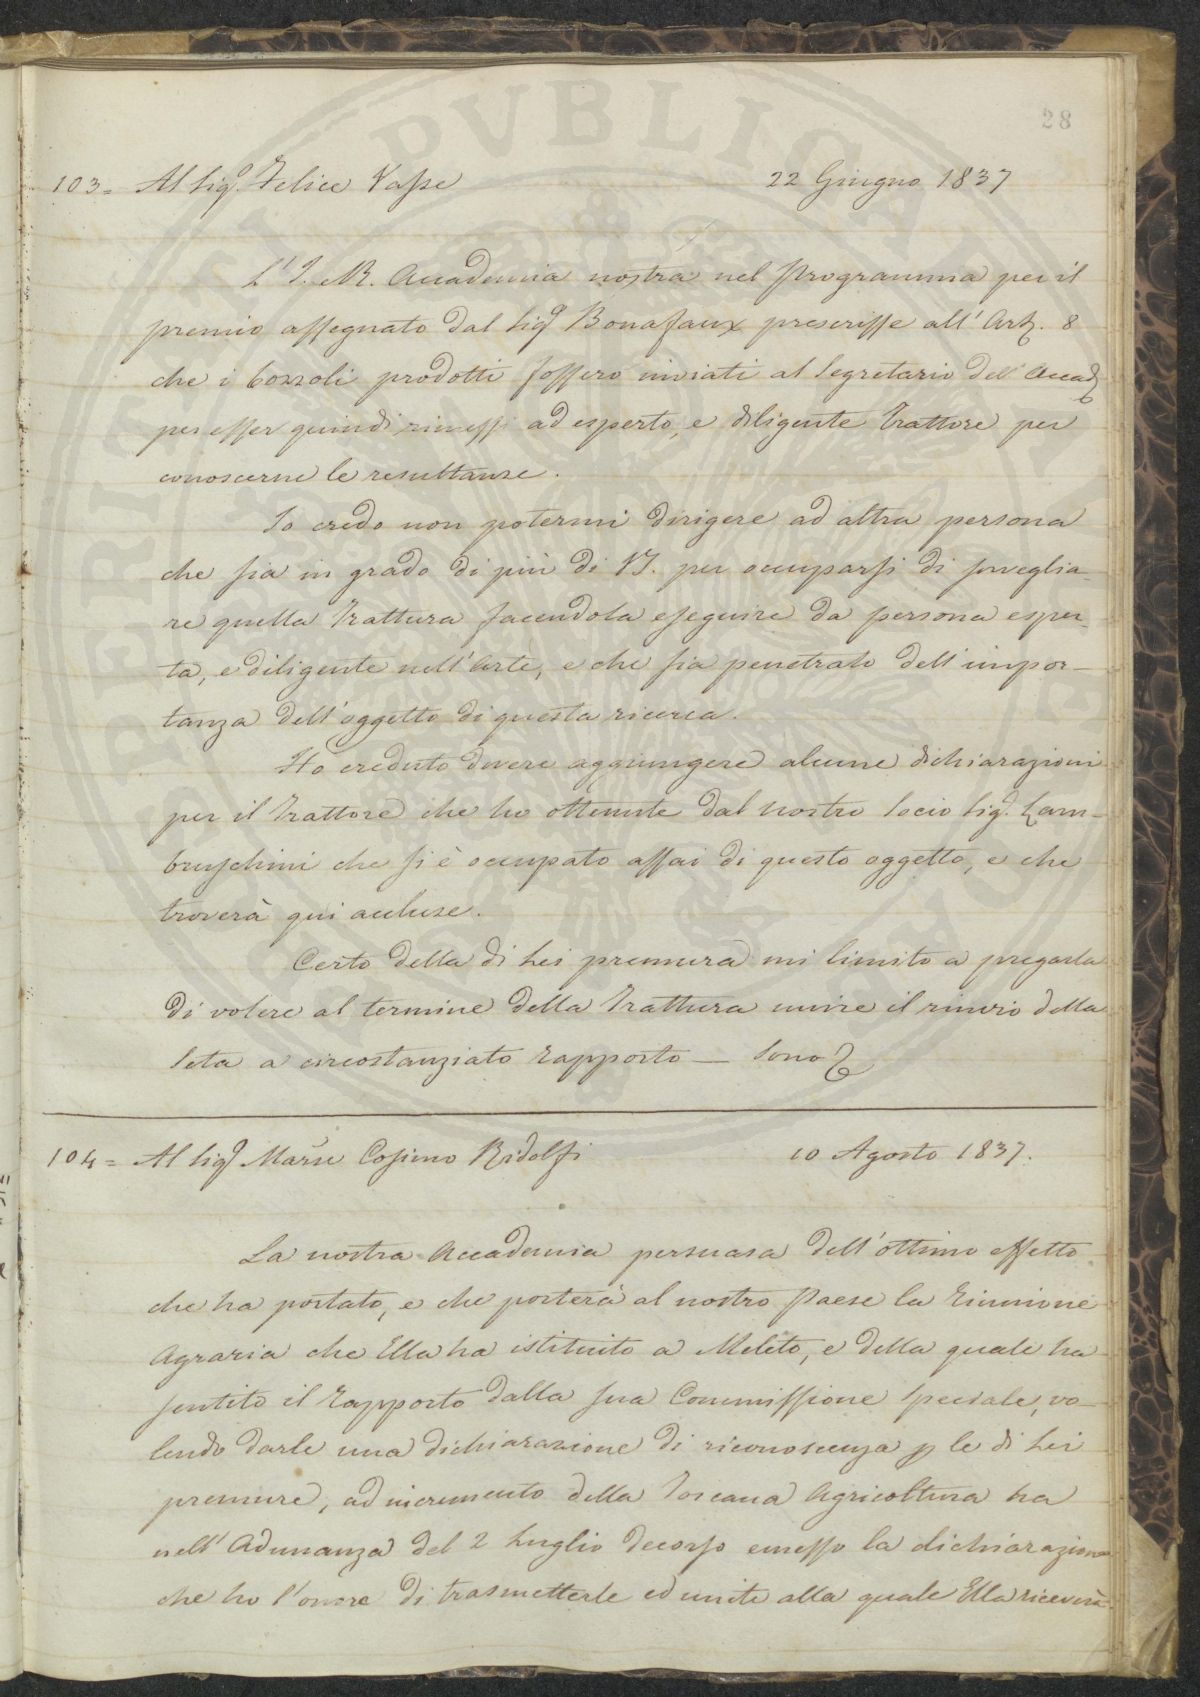 28
103= Al Sig.r Felice Vasse 22 Giugno 1837
L'I. R. Accademia nostra nel Programma per il
premio assegnato dal Sig.r Bonafoux prescrisse all'Art. 8
che i bozzoli prodotti fossero inviati al Segretario dell'Accad.
per esser quindi rimessi ad esperto, e diligente Trattore per
conoscerne le resultanze.
Io credo non potermi dirigere ad altra persona
che sia in grado di più di VS. per occuparsi di sorveglia-
re quella Trattura facendola eseguire da persona esper-
ta, e diligente nell'Arte, e che sia penetrato dell'impor-
tanza dell'oggetto di questa ricerca.
Ho creduto dovere aggiungere alcune dichiarazioni
per il Trattore che ho ottenute dal nostro Socio Sig.r Lam-
bruschini che si è occupato assai di questo oggetto, e che
troverà qui accluse.
Certo della di Lei premura mi limito a pregarla
di volere al termine della Trattura unire il rinvio della
Seta a circostanziato rapporto — Sono
104= Al Sig.r Marse Cosimo Ridolfi 10 Agosto 1837.
La nostra Accademia persuasa dell'ottimo effetto
che ha portato, e che porterà al nostro Paese la Riunione
Agraria che Ella ha istituito a Meleto, e della quale ha
sentito il rapporto dalla sua Commissione speciale, vo-
lendo darle una dichiarazione di riconoscenza p le di Lei
premure, ad incremento della Toscana Agricoltura ha
nell'Adunanza del 2 Luglio decorso emesso la dichiarazione
che ho l'onore di trasmetterle ed unite alla quale Ella riceverà